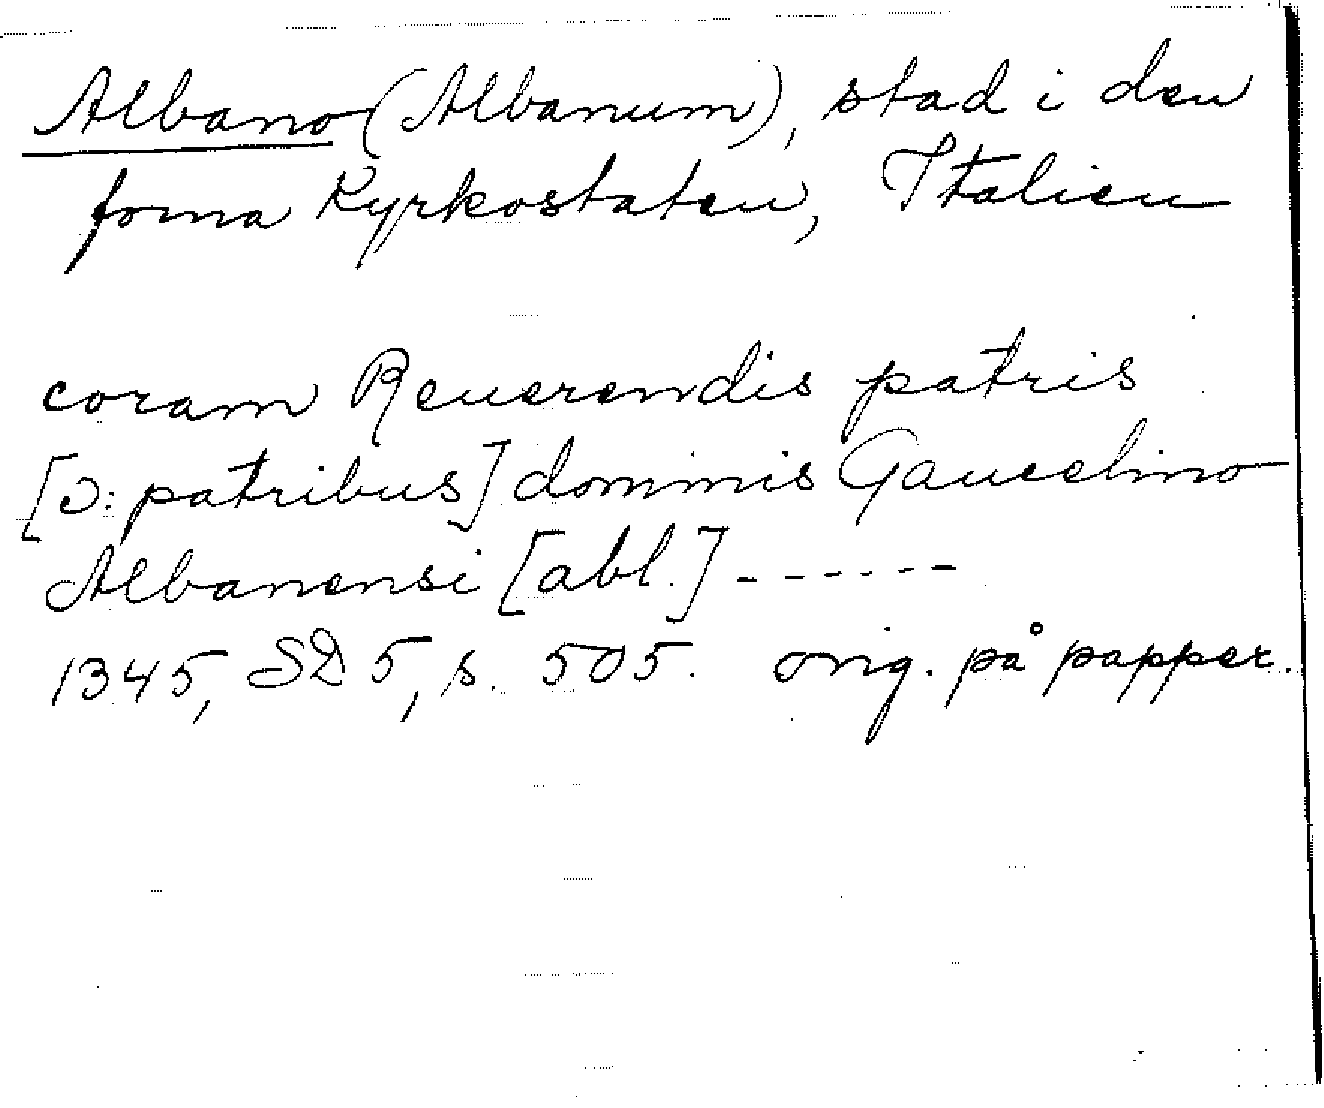 Albano (Albanum), stad i den
forna Kyrkostaten, Italien
coram Reuerendis patris
[ɔ: patribus] dominis Gaucelino
Albanensi [abl.] ------
1345, SD 5, s. 505. orig. på papper.